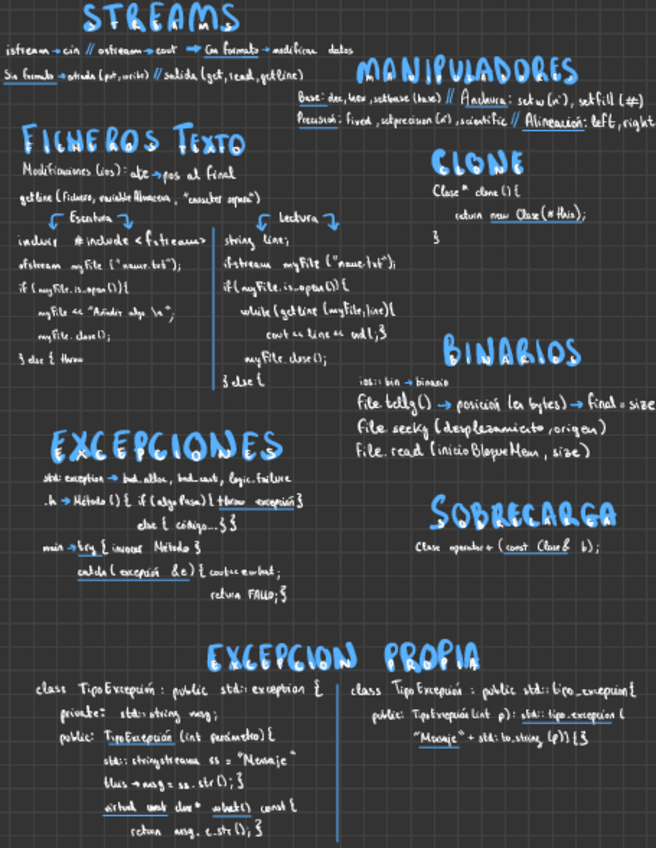 STREAMS
istream → cin // ostream → cout → Con formato → modificar datos
Sin formato → entrada (put, write) // salida (get, read, getline)
MANIPULADORES
Base: dec, hex, setbase (base) // Anchura: setw(n'), setfill (#)
Precisión: fixed, setprecision (n'), scientific // Alineación: left, right
FICHEROS TEXTO
Modificaciones (ios): ate → pos al final
getline (Fichero, variable Almacena, "caracter separa")
Escritura
incluir #include <fstream>
ofstream myFile ("name.txt");
if (myFile.is_open()){
myFile << "Añadir algo \n";
myFile.close();
} else { throw
Lectura
string line;
ifstream myFile ("name.txt");
if(myFile.is_open()){
while (getline (myFile, line){
cout << line << endl;}
myFile.close();
} else {
CLONE
Clase* clone () {
return new Clase(*this);
}
BINARIOS
ios::bin → binario
File.tellg() → posición (en bytes) → final = size
File.seekg (desplazamiento, origen)
File.read (inicioBloqueMem, size)
EXCEPCIONES
std::exception → bad_alloc, bad_cast, logic_failure
.h → Método () { if (algoPasa) { throw excepción }
else { código...} }
main → try { invocar Método }
catch ( excepción &e) { cout<<e.what;
return FALLO; }
SOBRECARGA
Clase operator+ (const Clase& b);
EXCEPCION PROPIA
class TipoExcepción : public std::exception {
private: std::string msg;
public: TipoExcepción (int parámetro) {
std::stringstream ss = "Mensaje"
this → msg = ss.str(); }
virtual const char* what() const {
return msg.c_str(); }
class TipoExcepción : public std::tipo_excepcion {
public: TipoExcepción (int p): std::tipo_excepcion (
"Mensaje" + std::to_string (p)) { }